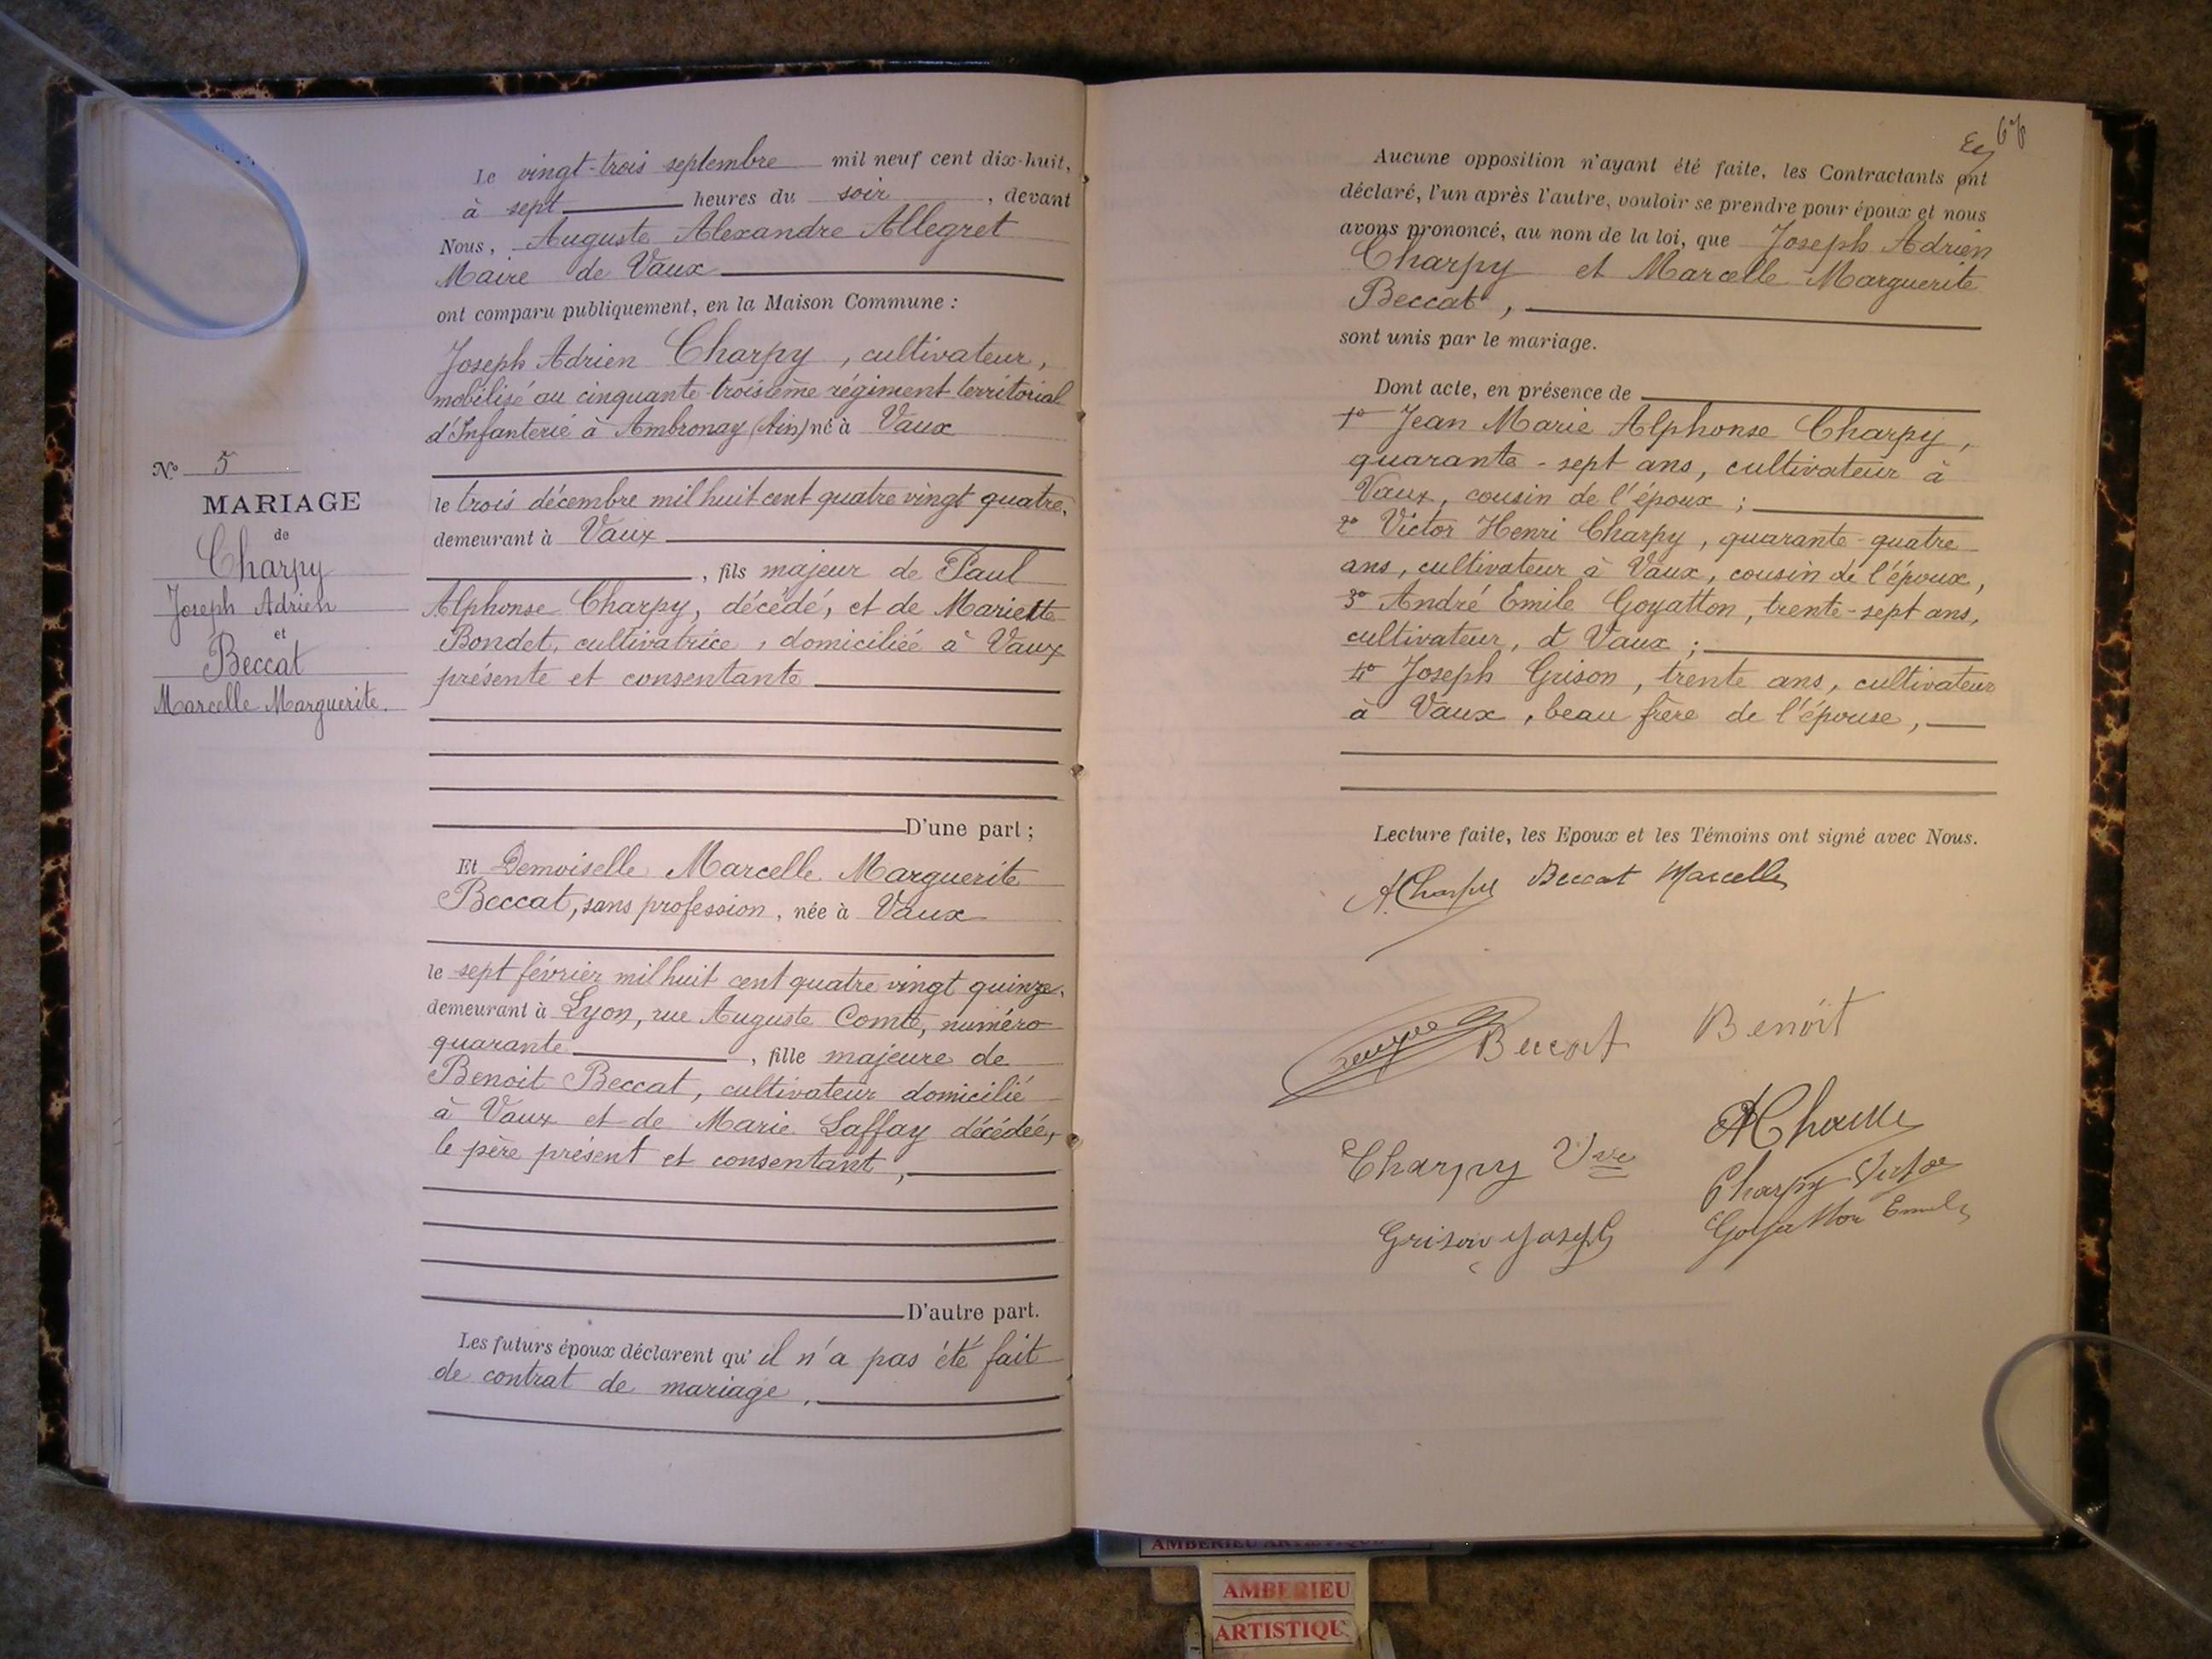 Le vingt-trois septembre mil neuf cent dix-huit,
à sept heures du soir, devant
Nous, Auguste Alexandre Allegret
Maire de Vaux
ont comparu publiquement, en la Maison Commune :
Joseph Adrien Charpy, cultivateur,
mobilisé au cinquante troisième régiment territorial
d'Infanterie à Ambronay (Ain) né à Vaux
le trois décembre mil huit cent quatre vingt quatre,
demeurant à Vaux
, fils majeur de Paul
Alphonse Charpy, décédé, et de Mariette
Bondet, cultivatrice, domiciliée à Vaux
présente et consentante
D'une part ;
Et Demoiselle Marcelle Marguerite
Beccat, sans profession, née à Vaux
le sept février mil huit cent quatre vingt quinze,
demeurant à Lyon, rue Auguste Comte, numéro
quarante, fille majeure de
Benoit Beccat, cultivateur domicilié
à Vaux et de Marie Laffay décédée,
le père présent et consentant,
D'autre part.
Les futurs époux déclarent qu'il n'a pas été fait
de contrat de mariage,
N° 5
MARIAGE
de
Charpy
Joseph Adrien
et
Beccat
Marcelle Marguerite.
Aucune opposition n'ayant été faite, les Contractants ont
déclaré, l'un après l'autre, vouloir se prendre pour époux et nous
avons prononcé, au nom de la loi, que Joseph Adrien
Charpy et Marcelle Marguerite
Beccat,
sont unis par le mariage.
Dont acte, en présence de
1° Jean Marie Alphonse Charpy,
quarante-sept ans, cultivateur à
Vaux, cousin de l'époux ;
2° Victor Henri Charpy, quarante-quatre
ans, cultivateur à Vaux, cousin de l'époux,
3° André Emile Goyatton, trente-sept ans,
cultivateur, à Vaux ;
4° Joseph Grison, trente ans, cultivateur
à Vaux, beau frère de l'épouse,
Lecture faite, les Epoux et les Témoins ont signé avec Nous.
A. Charpy Beccat Marcelle
Beccat Benoit
Charpy Vve
Charpy Victor
Grison Joseph
Goyatton Emile
AMBERIEU ARTISTIQUE
AMBERIEU
ARTISTIQU